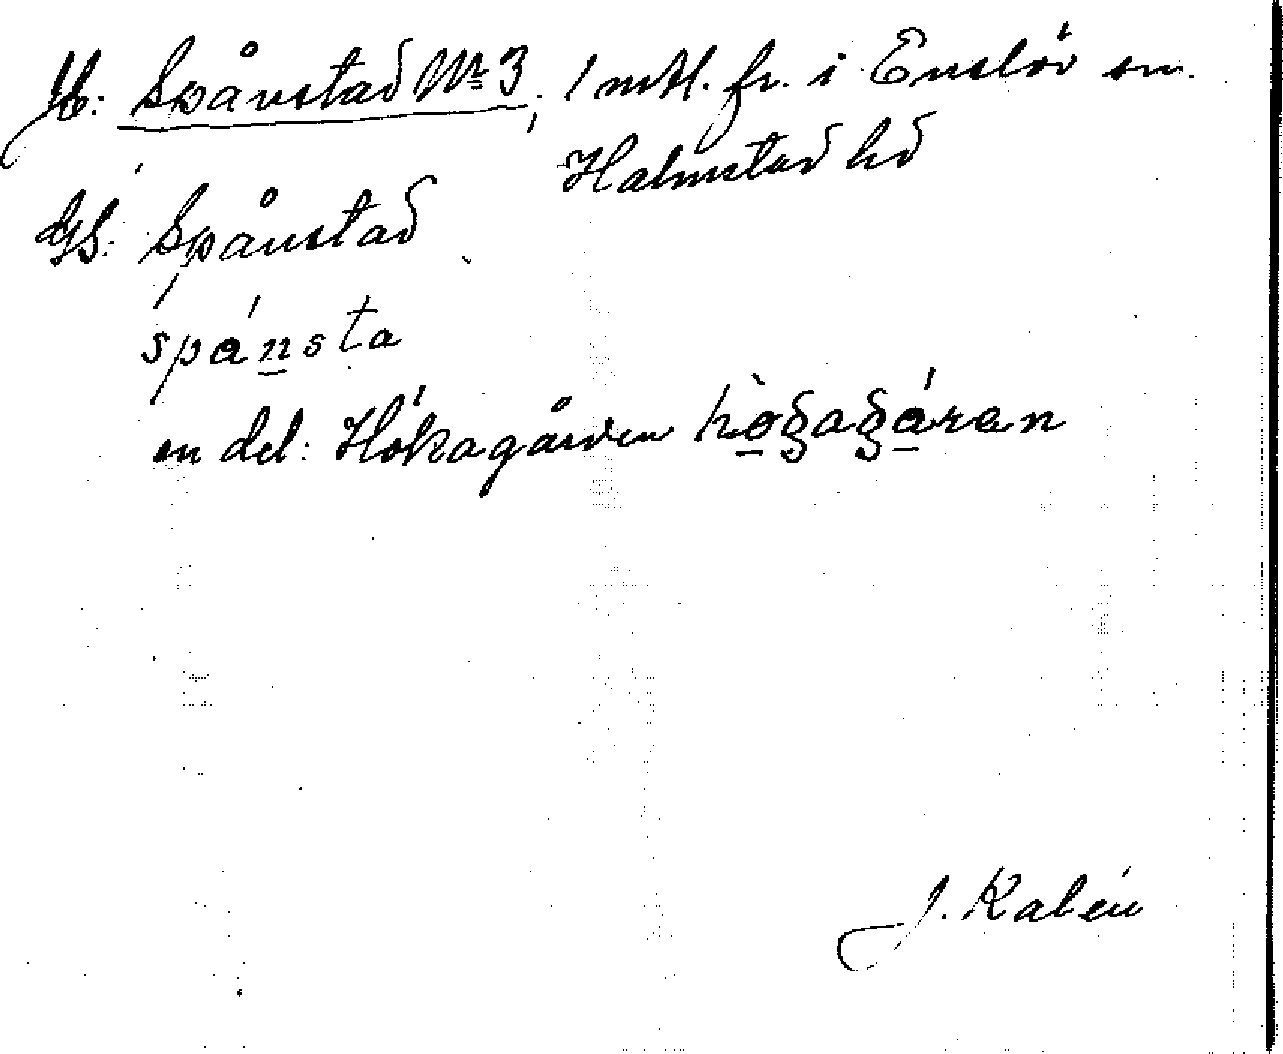 Jb: Spånstad No 3, 1 mtl. fr. i Enslöv sn.
Halmstad hd
GS: Spånstad
spánsta
en del: Hökagården hògagáran
J. Kalén